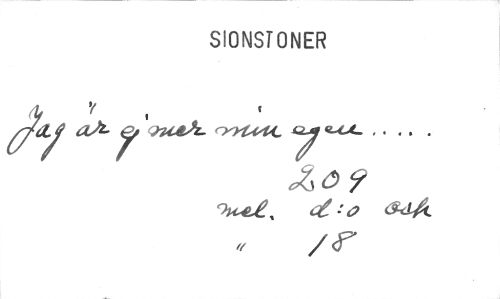 SIONSTONER
Jag är ej mer min egen.....
209
mel. d:o och
" 18